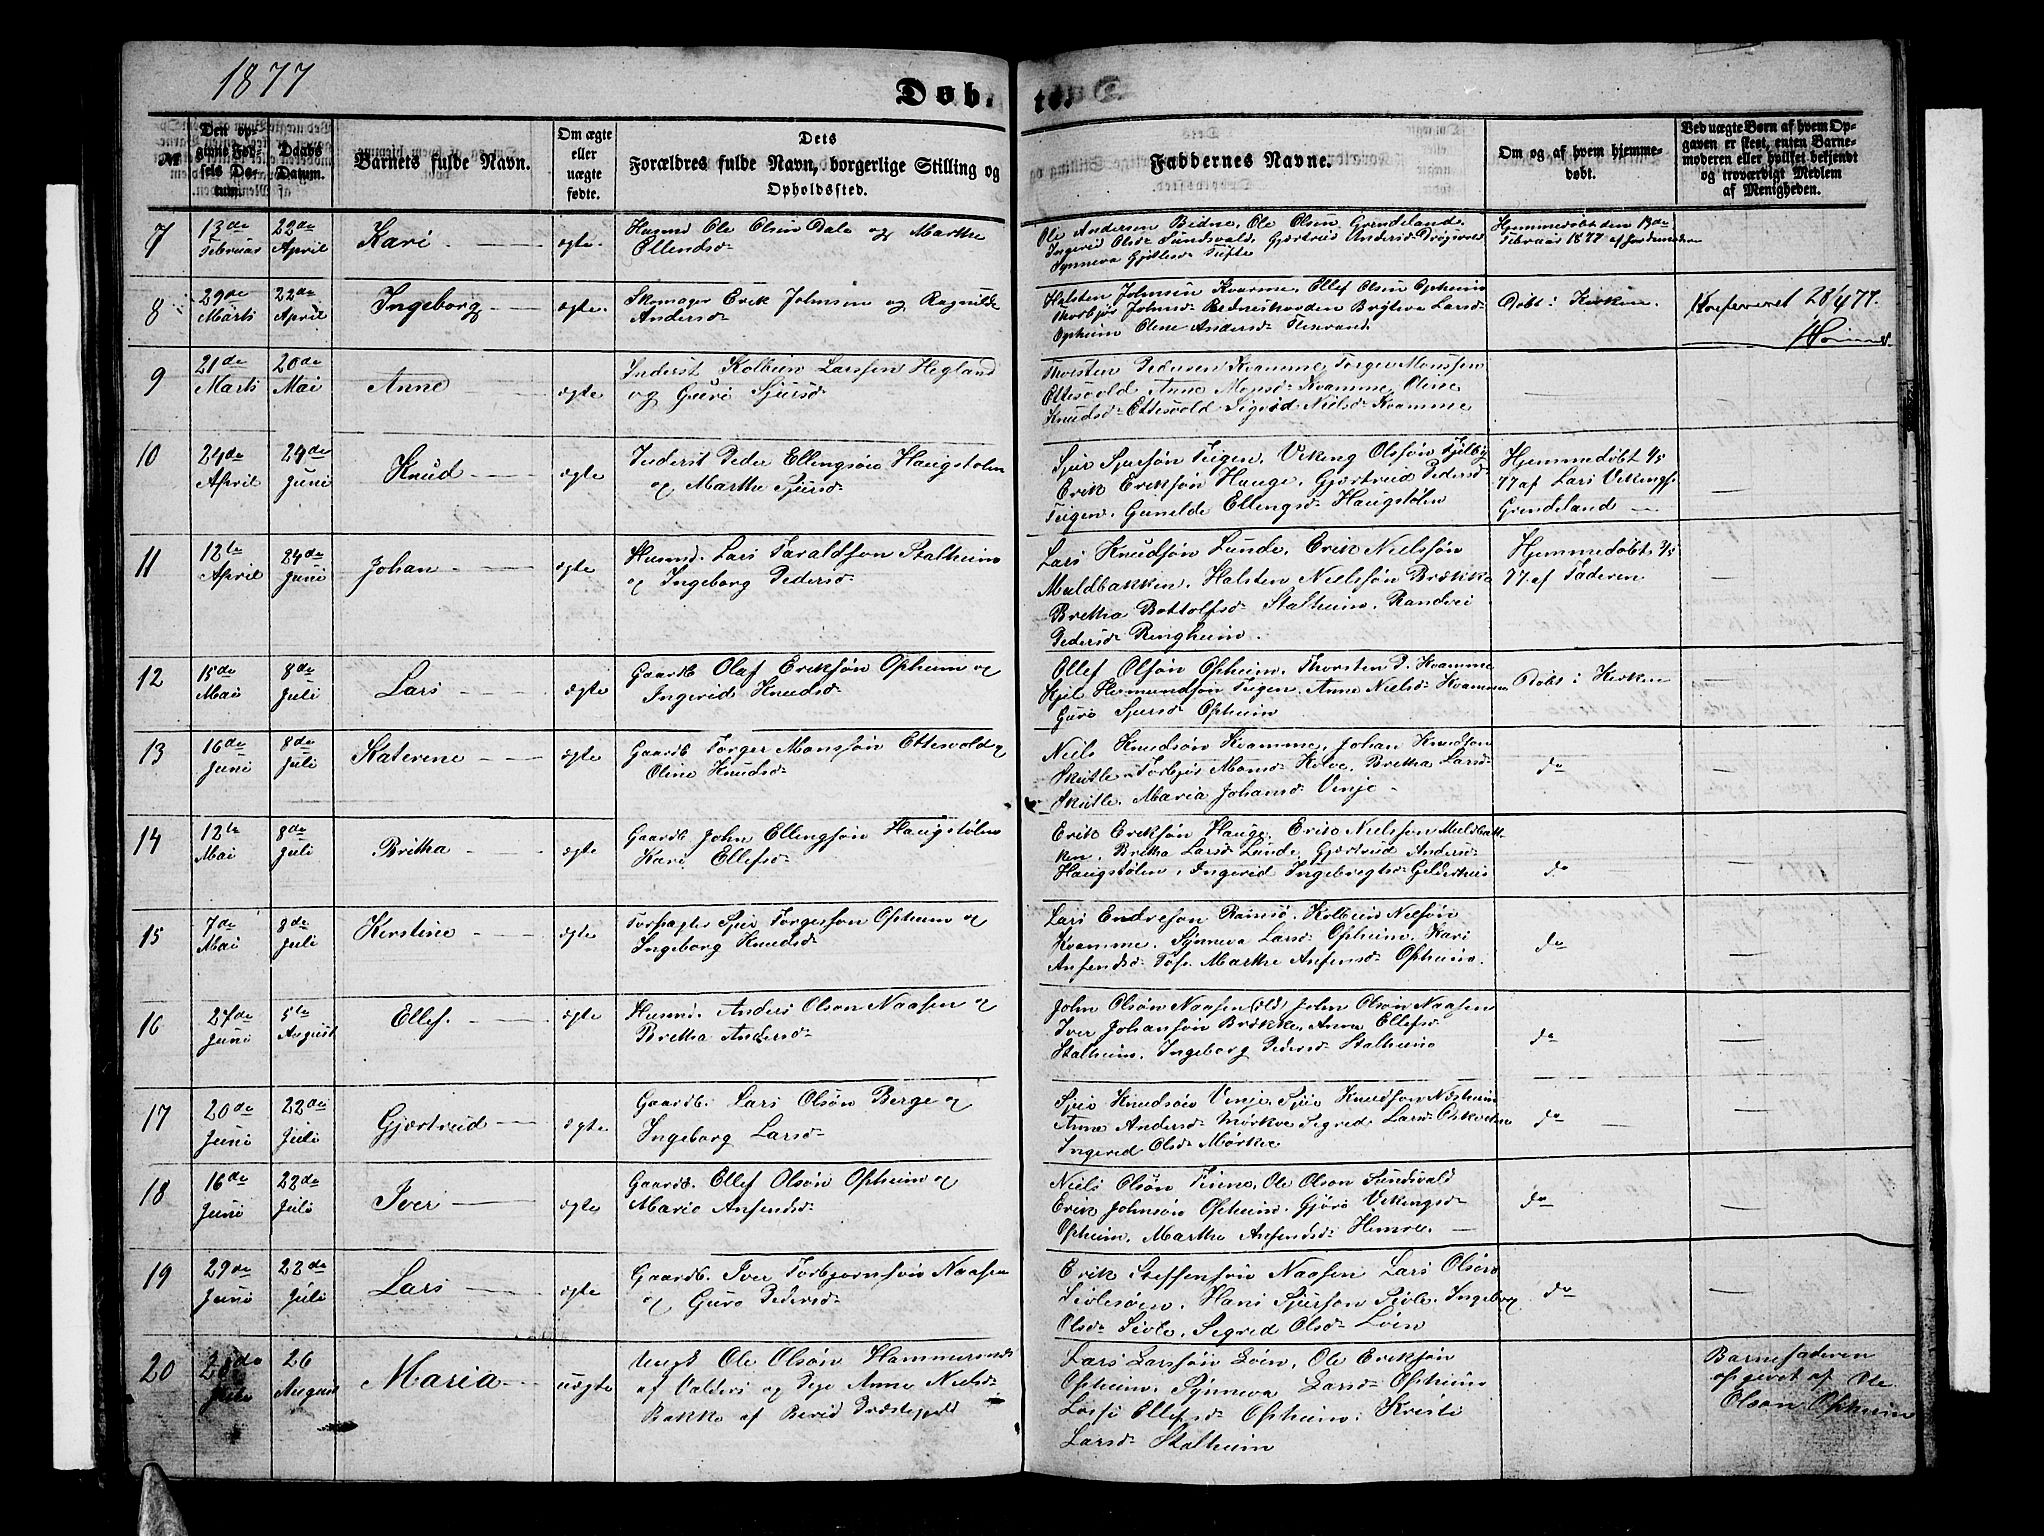 1877
Døb. te.
№
Den opgivne Fødsels Datum.
Daabs Datum.
Barnets fulde Navn.
Om ægte eller uægte fødte.
Dets Forældres fulde Navn, borgerlige Stilling og Opholdssted.
Faddernes Navne.
Om og af hvem hjemmedøbt.
Ved uægte Børn af hvem Opgaven er skeet, enten Barnemoderen eller hvilket bekjendt og troværdigt Medlem af Menigheden.
7 13de Februar 22de April Kari ægte Husmd Ole Olsen Dale og Martha
Ellendsd
Ole Andersen Bidne, Ole Olsen Grendeland
Ingerid Olsd Sundsvald, Gjærtrud Andersd
Synneva
Hjemmedøbt den 13de
Februar 1877 af
8 29de Marts 22de April Ingeborg ægte Skomager Erik Johnsen og Ragnilde
Andersd
Halsten Johnsen Kvamme, Ellef Olsen Opheim
Thorbjør Johnsd Bryteva Larsd
Opheim Oline Andersd
Døbt i Kirken.
28/4 77.
9 21de Marts 20de Mai Anne ægte Inderst Kolbein Larssen Hegland
og Guri Sjursd
Thorsten Pedersen Kvamme, Torger Monssen
Ettesvold Anne Monsd Kvamme, Oline
Knudsd Ettesvold Sigrid Nielsd Kvamme
10 24de April 24de Juni Knud ægte Inderst Peder Ellingsøn Haugstølen
og Martha Sjursd
Sjur Sjursøn Teigen, Viking Olsøn
Erik Eriksøn Hauge, Gjørtrud Pedersd
Teigen, Gunilde Ellingsd Haugstølen
Hjemmedøbt 1/5
77 af Lars Vikingsf
Grendeland
11 12te April 24de Juni Johan ægte Husmd. Lars Taraldson Stalheim
og Ingeborg Pedersd
Lars Knudsøn Lunde, Erik Nielssøn
Muldbakken, Halsten Nielssøn Brække
Bretha Bottolfsd Stalheim, Randvei
Pedersd Ringheim.
Hjemmedøbt 3/5
77 af Faderen
12 15de Mai 8de Juli Lars ægte Gaardb Olaf Eriksøn Opheim og
Ingerid Knudsd
Ellef Olsøn Opheim, Thorsten P. Kvamme
Kjel Hermundson Teigen, Anne Nielsd Kvamme
Guro Sjursd Opheim
Døbt i Kirken
13 16de Juni 8de Juli Katerine ægte Gaardb Torger Monssøn Ettesvold og
Oline Knudsd
Niels Knudsøn Kvamme, Johan Knudsøn
Skutle, Torbjør Monsd Kolve, Bretha Larsd
Skutle, Maria Johansd Vinje
do
14 12te Mai 8de Juli Britha ægte Gaardb John Ellingsøn Haugstølen
Kari Ellefsd
Erik Eriksøn Hauge, Erik Nielssøn Muldbak-
ken, Bretha Larsd Lunde, Gjørtrud Andersd
Haugstølen, Ingerid Ingebregtsd Gelderhus
do
15 7de Mai 8de Juli Kirstine ægte Forpagter Sjur Torgerson Opheim og
Ingeborg Knudsd
Lars Endreson Ramsø, Kolbein Nielsøn
Kvamme, Synneva Larsd Opheim, Kari
Anfendsd Martha Anfensd Opheim.
do
16 27de Juni 5te August Ellef. ægte Husmd. Anders Olson Naasen og
Bretha Andersd
John Olsøn Naasen (old) John Olson Naasen
Iver Johansøn Brække, Anna Ellefsd
Stalheim, Ingeborg Pedersd Stalheim
do
17 20de Juni 22de Juli Gjertrud ægte Gaardb. Lars Olsøn Berge og
Ingeborg Larsd
Sjur Knudsøn Vinje, Sjur Knudson Næsheim
Anne Andersd Mørkve Sigrid Larsd
Ingerid Olsd Mørkve
do
18 16de Juni 22de Juli Iver ægte Gaardb. Ellef Olsøn Opheim og
Marie Anfendsd
Niels Olsøn Tinne, Ole Olson Sundsvald
Erik Johnsøn Opheim, Gjøro Vikingsd
Opheim, Martha Anfendsd Himre.
do
19 29de Juni 22de Juli Lars ægte Gaardb. Iver Torbjørnsøn Naasen
og Guro Pedersd
Erik Steffensøn Naasen Lars Olsen
Hans Sjurson Sivle, Ingeborg
Olsd Sivle, Sigrid Olsd Løin
do
20 26 August Maria uægte Ungk Ole Olsøn Hammersnes
af Valders og Pige Anne Nielsd
Bakke af Præstegjeld
Lars Larssøn Løin, Ole Eriksøn
Opheim, Synneva Larsd Opheim
Ellefsd Opheim, Kristi
Larsd Stalheim
Barnefaderen
opgivet af Ole
Olson Opheim